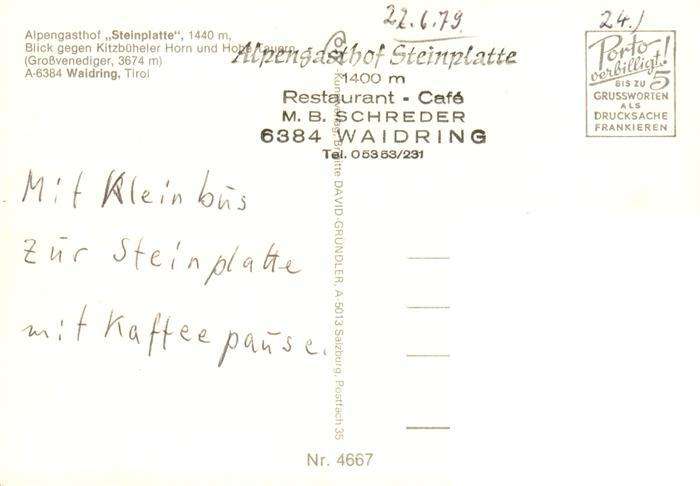 22.6.79
24./
Alpengasthof „Steinplatte", 1440 m,
Blick gegen Kitzbüheler Horn und Hohe Tauern
(Großvenediger, 3674 m)
A-6384 Waidring, Tirol
Alpengasthof Steinplatte
1400 m
Restaurant - Café
M. B. SCHREDER
6384 WAIDRING
Tel. 05353/231
Porto
verbilligt!
BIS ZU 5
GRUSSWORTEN
ALS
DRUCKSACHE
FRANKIEREN
Mit Kleinbus
zur Steinplatte
mit Kaffeepause.
DAVID-GRÜNDLER, A-5013 Salzburg, Postfach 35
Nr. 4667